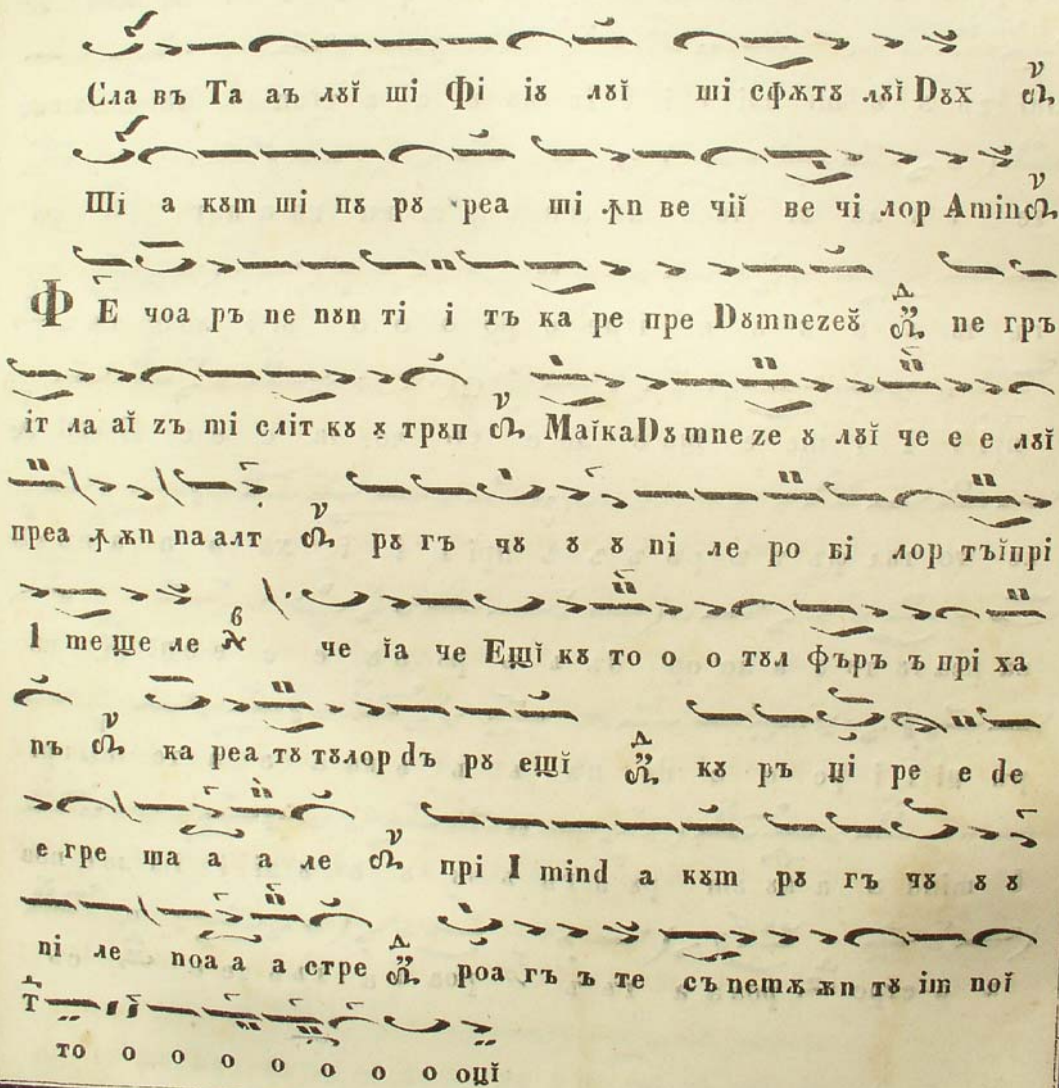 Сла въ Та аъ лꙋĭ ші Фі іꙋ лꙋĭ ші сфѫтꙋ лꙋĭ Dꙋх
Ші а кꙋm ші пꙋ рꙋ реа ші ꙟn ве чіĭ ве чі лор Аmin
ФЕ чоа ръ пе nꙋn ті і тъ ка ре пре Dꙋmnezeꙋ̆ пе гръ
іт ла аĭ zъ mі сліт кꙋ ꙋ трꙋп МаĭкаDꙋ mne ze ꙋ лꙋĭ че е е лꙋĭ
преа ꙟ ѫn па алт рꙋ гъ чꙋ ꙋ ꙋ nі ле ро бі лор тъĭпрі
І mе ще ле че ĭа че Ещĭ кꙋ то о о тꙋл фъръ ъ прі ха
nъ ка реа тꙋ тꙋлор dъ рꙋ ещĭ кꙋ ръ ці ре е de
е гре ша а а ле прі І mіnd а кꙋm рꙋ гъ чꙋ ꙋ ꙋ
nі ле поа а а стре роа гъ ъ те съ пеmѫ ѫn тꙋ іm поĭ
то о о о о о о о оцĭ